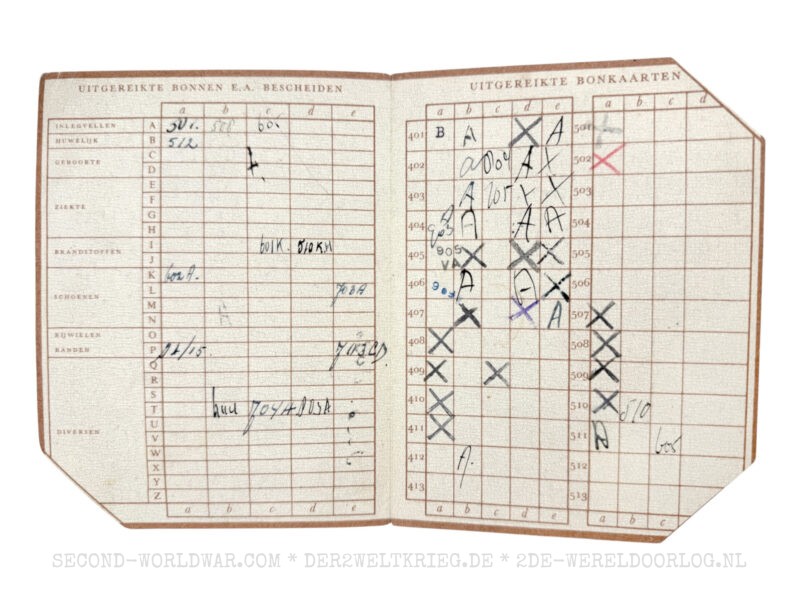 UITGEREIKTE BONNEN E.A. BESCHEIDEN
a b c d e
INLEGVELLEN A 501. 508 601.
HUWELIJK B 512
GEBOORTE C
D
E
F
ZIEKTE G
H
I 601K. 510KH
BRANDSTOFFEN J
K 602A.
SCHOENEN L 703A
M
N A
RIJWIELEN O
BANDEN P
Q
R
S
T 704A
DIVERSEN U
V
W
X
Y
Z
a b c d e
UITGEREIKTE BONKAARTEN
a b c d e a b c d
401 B A X A 501
402 a A X 502 X
403 A X X 503
404 A A A 504
405 905 VA X X X 505
406 A A X 506
407 X X A 507 X
408 X 508 X
409 X X 509 X
410 X 510 X 510
411 X 511 605
412 A. 512
413 513
a b c d e a b c
SECOND-WORLDWAR.COM * DER2WELTKRIEG.DE * 2DE-WERELDOORLOG.NL